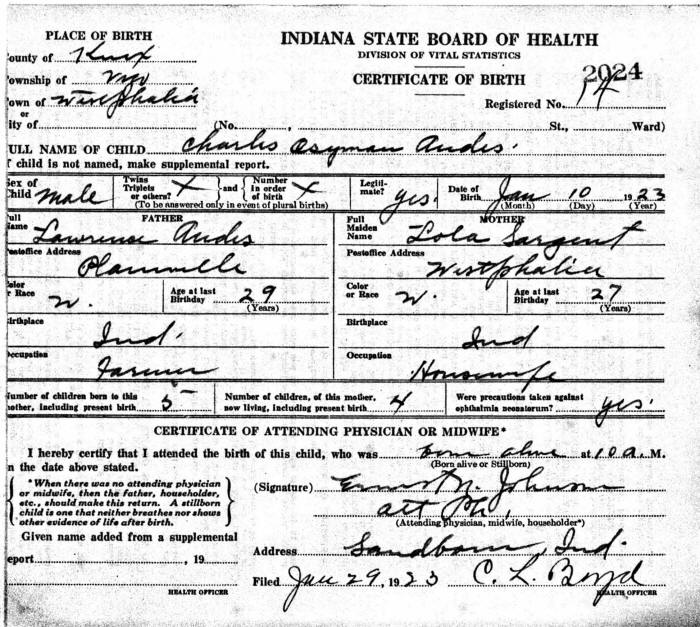 PLACE OF BIRTH
INDIANA STATE BOARD OF HEALTH
DIVISION OF VITAL STATISTICS
CERTIFICATE OF BIRTH
2024
ounty of Knox
ownship of Vigo
own of Westphalia
or
ity of
Registered No. 14
(No. , St., Ward)
ULL NAME OF CHILD Charles Osyman Andis.
f child is not named, make supplemental report.
Sex of Child male
Twins Triplets or others? X
and Number in order of birth X
(To be answered only in event of plural births)
Legiti-mate? yes.
Date of Birth Jan 10 1923
(Month) (Day) (Year)
FATHER
MOTHER
Full Name Lawrence Andis
Full Maiden Name Lola Sargent
Postoffice Address Plainville
Postoffice Address Westphalia
Color or Race W.
Age at last Birthday 29
(Years)
Color or Race W.
Age at last Birthday 27
(Years)
Birthplace Ind.
Birthplace Ind
Occupation Farmer
Occupation Housewife
Number of children born to this mother, including present birth 5
Number of children, of this mother, now living, including present birth 4
Were precautions taken against ophthalmia neonatorum? yes.
CERTIFICATE OF ATTENDING PHYSICIAN OR MIDWIFE*
I hereby certify that I attended the birth of this child, who was born alive at 10 a. M.
(Born alive or Stillborn)
n the date above stated.
*When there was no attending physician
or midwife, then the father, householder,
etc., should make this return. A stillborn
child is one that neither breathes nor shows
other evidence of life after birth.
(Signature) Ernest N. Johnson
att Ph.
(Attending physician, midwife, householder*)
Given name added from a supplemental
eport , 19
HEALTH OFFICER
Address Sandborn, Ind.
Filed Jan 29, 1923 C. L. Boyd
HEALTH OFFICER